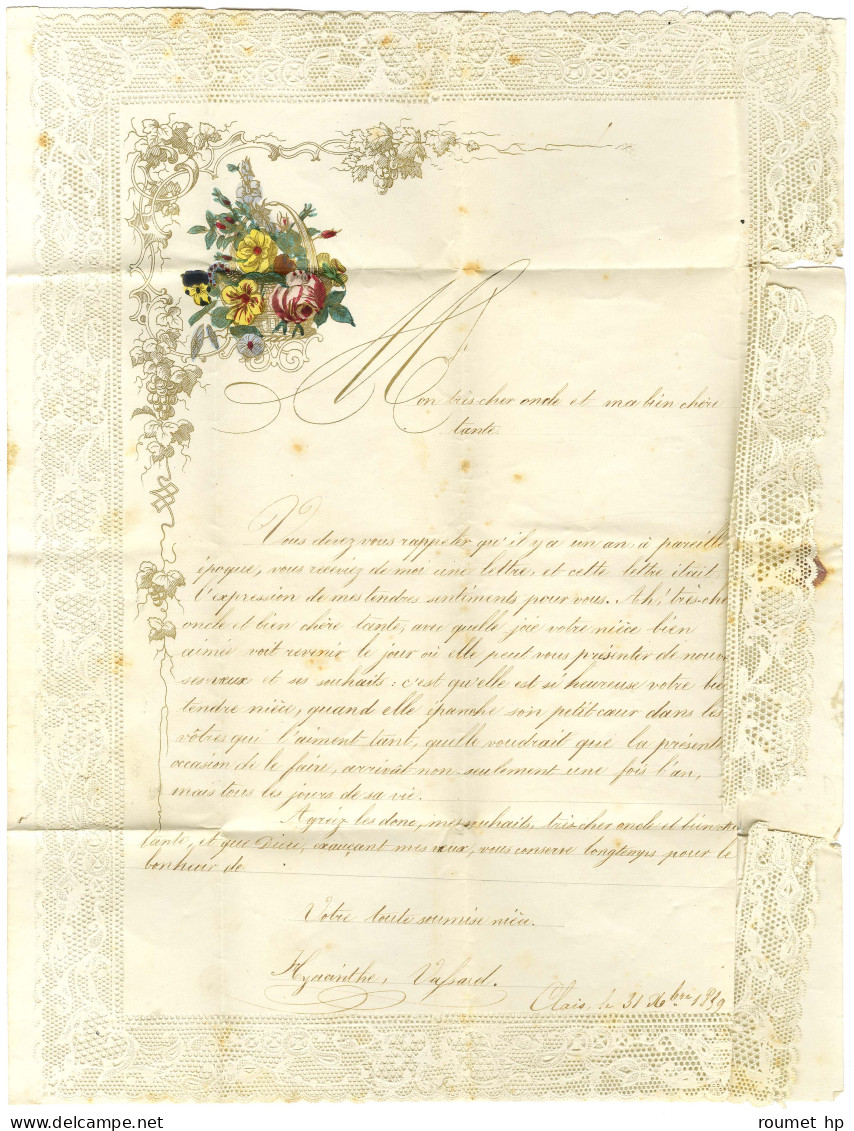 Mon très cher oncle et ma bien chère
tante.
Vous devez vous rappeler qu'il y a un an à pareille
époque, vous receviez de moi une lettre, et cette lettre était
l'expression de mes tendres sentiments pour vous. Ah! très-che
oncle et bien chère tante, avec quelle joie votre nièce bien
aimée voit revenir le jour où elle peut vous présenter de nouv
ses vœux et ses souhaits: c'est qu'elle est si heureuse votre
tendre nièce, quand elle épanche son petit cœur dans les
vôtres qui l'aiment tant, qu'elle voudrait que la présente
occasion de le faire, arrivât non-seulement une fois l'an,
mais tous les jours de sa vie.
Agréez les donc, mes souhaits, très-cher oncle et bien che
tante, et que Dieu, exauçant mes vœux, vous conserve longtemps pour le
bonheur de
Votre toute soumise nièce.
Hyacinthe, Vassard.
le 31 Xbre
roumet hp